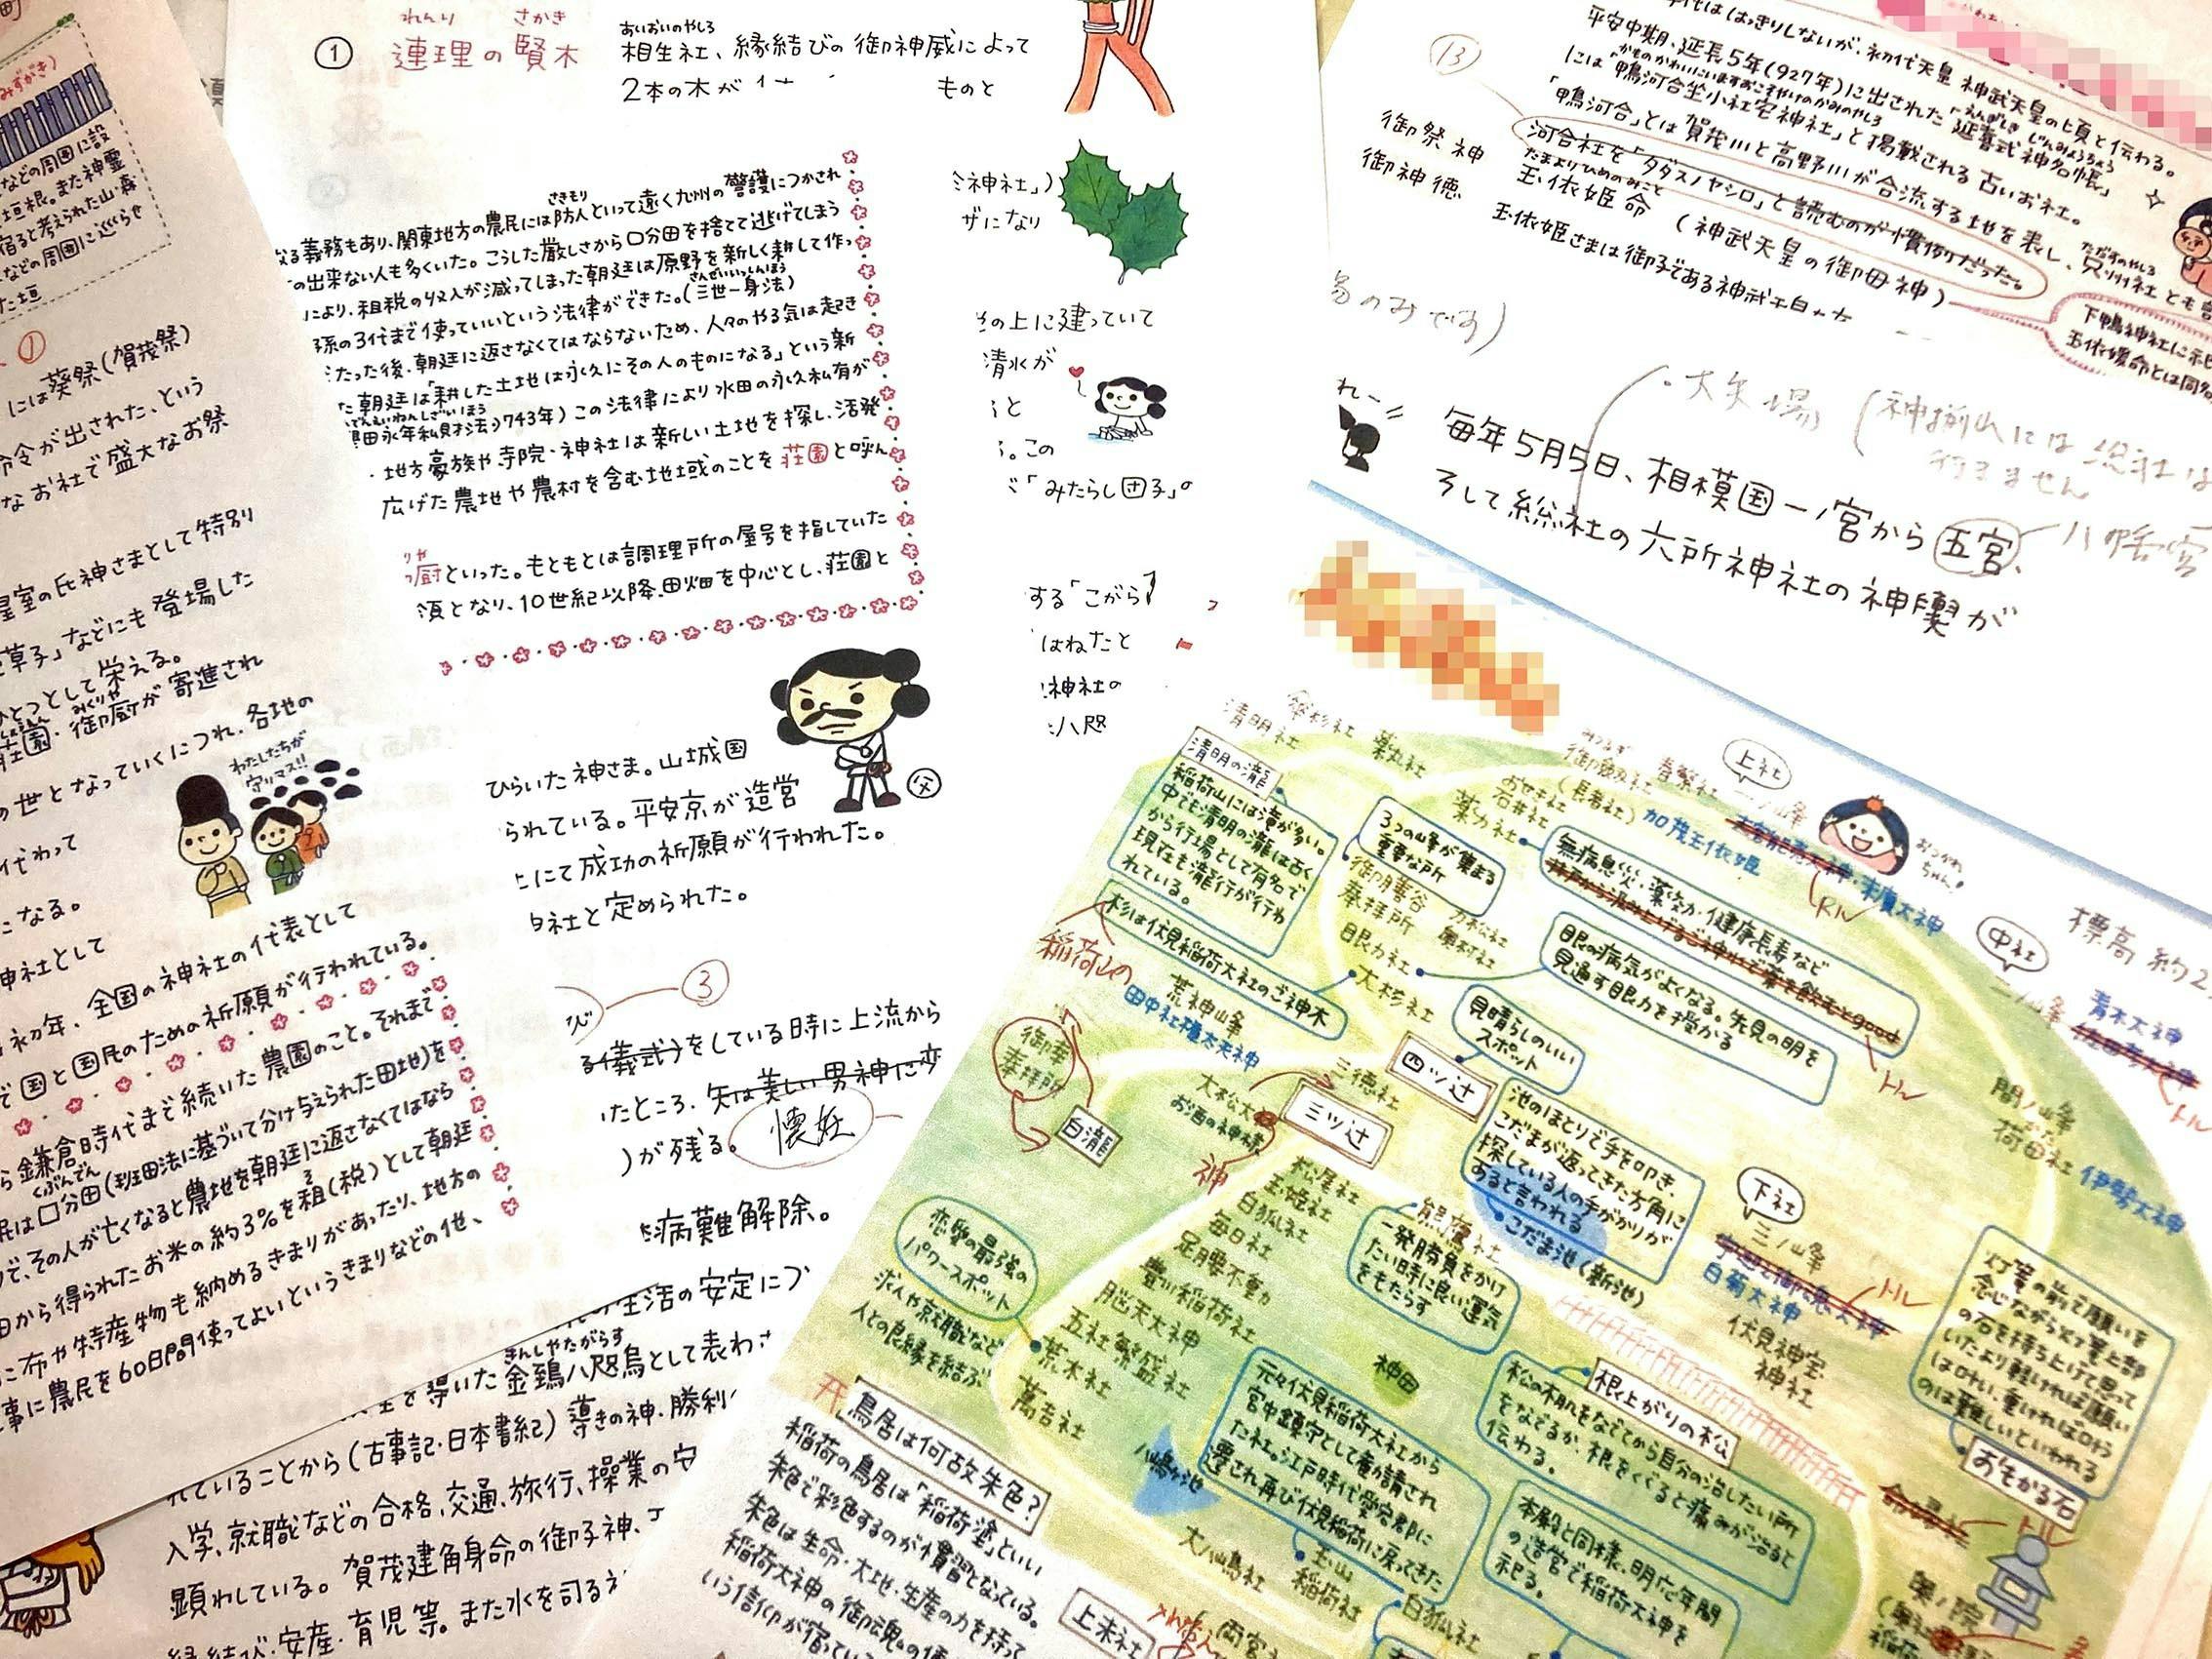 ① 連理の賢木
れんり さかき
あいおいのやしろ
相生社、縁結びの御神威によって
2本の木が
ものと
神社」)
ザになり
の上に建っていて
清水が
と
この
「みたらし団子」の
する「こがらし
はねたと
神社の
八咫
さきもり
なる義務もあり、関東地方の農民には防人といって遠く九州の警護につかされ
の出来ない人も多くいた。こうした厳しさから口分田を捨てて逃げてしまう
により、租税の収入が減ってしまった朝廷は原野を新しく耕して作っ
さんぜいっしんほう
孫の3代まで使っていいという法律ができた。(三世一身法)
たった後、朝廷に返さなくてはならないため、人々のやる気は起き
た朝廷は「耕した土地は永久にその人のものになる」という新
田永年私財法)743年)この法律により水田の永久私有が
・地方豪族や寺院・神社は新しい土地を探し、活発
広げた農地や農村を含む地域のことを荘園と呼ん
りや
厨といった。もともとは調理所の屋号を指していた
領となり、10世紀以降、田畑を中心とし、荘園と
父
ひらいた神さま。山城国
られている。平安京が造営
にて成功の祈願が行われた。
社と定められた。
③
儀式)をしている時に上流から
たところ、矢は美しい男神に変
)が残る。
懐妊
病難解除。
生活の安定に
みずがき)
などの周囲に設
垣根。また神霊
宿ると考えられた山・森
などの周囲に巡らせ
た垣
①
には葵祭(賀茂祭)
命令が出された、という
なお社で盛大なお祭
皇室の氏神さまとして特別
草子」などにも登場した
ひとつとして栄える。
みくりや
荘園・御厨が寄進され
の世となっていくにつれ、各地の
代わって
になる。
神社として
わたしたちが
守りマス!!
初年、全国の神社の代表として
で国と国民のための祈願が行われている。
ら鎌倉時代まで続いた農園のこと。それまで
くぶんでん
民は口分田(班田法に基づいて分け与えられた田地)を
で、その人が亡くなると農地を朝廷に返さなくてはなら
田から得られたお米の約3%を租(税)として朝廷
に布や特産物も納めるきまりがあったり、地方の
事に農民を60日間使ってよいというきまりなどの他、
きんしやたがらす
を導いた金鵄八咫烏として表わさ
れていることから(古事記・日本書紀)導きの神、勝利
入学、就職などの合格、交通、旅行、操業の安
顕わしている。賀茂建角身命の御子神、
縁結び・安産・育児等。また水を司る
年代ははっきりしないが、初代天皇 神武天皇の頃と伝わる。
平安中期・延長5年(927年)に出された「延喜式神名帳」
えんぎしき じんみょうちょう
かものかわいにいますおこそやけのかみのやしろ
には「鴨河合坐小社宅神社」と掲載される古いお社。
「鴨河合」とは賀茂川と高野川が合流する地を表し、只州社とも
ただすのやしろ
河合社を「タダスノヤシロ」と読むのが慣例だった。
⑬
御祭神
たまよりひめのみこと
玉依姫命(神武天皇の御母神)
御神徳
玉依姫さまは御子である神武天皇
下鴨神社に
玉依媛命とは同名
のみです)
れー
大矢場
神揃山には総社は
行きません
毎年5月5日、相模国一ノ宮から五宮、
八幡宮
そして総社の六所神社の神輿が
清明社
傘杉社
薬丸社
みつるぎ
御劔社
(長者社)
おせき社
石井社
薬力社
春繁社
加茂玉依姫
上社
一ノ峰
末廣大神
トル
おつかれ
ちゃん!
中社
二ノ峰
標高 約2
青木大神
佐田彦大神
トル
間ノ峰
荷田社
伊勢大神
下社
三ノ峰
白菊大神
トル
伏見神宝
神社
清明の瀧
稲荷山には滝が多い。
中でも清明の瀧は古く
から行場として有名で
現在も瀧行が行わ
れている。
3つの山峰が集まる
重要な所
御膳谷
奉拝所
眼力社
大杉社
杉は伏見稲荷大社のご神木
稲荷山の
無病息災・薬効・健康長寿など
井戸から汲み上げるご神水で薬を飲むとgood
トル
眼の病気がよくなる。先見の明を
見通す眼力を授かる
荒神峰
田中社権太夫神
御幸
奉拝所
白瀧
四ツ辻
見晴らしのいい
スポット
三徳社
大松大
お酒の神様
神
三ツ辻
池のほとりで手を叩き、
こだまが返ってきた方角に
探している人の手がかりが
あると言われる
こだま池(新池)
熊鷹社
一発勝負をかけ
たい時に良い運気
をもたらす
松尾社
玉姫社
白狐社
毎日社
足腰不動
豊川稲荷社
脳天大神
五社繁盛社
荒木社
萬吉社
恋愛の最強の
パワースポット
求人や京就職など
人との良縁を結ぶ
神田
八嶋ヶ池
元々伏見稲荷大社から
宮中鎮守として勧請され
た社。江戸時代愛宕郡に
遷され再び伏見稲荷に戻ってきた
玉山
稲荷社
大八嶋社
白狐社
両宮
上末社
根上がりの松
松の木肌をなでてから自分の治したい所
をなでるか、根をくぐると痛みが治ると
伝わる。
本殿と同様、明応年間
の造営で稲荷大神を
祀る。
灯篭の前で願いを
念じながら灯篭上部
の石を持ち上げて思って
いたより軽ければ願い
は叶い、重ければ叶う
のは難しいといわれる
おもかる石
トル
奥ノ院
鳥居は何故朱色?
稲荷の鳥居は「稲荷塗」といい
朱色で彩色するのが慣習となっている。
朱色は生命・大地・生産の力を持って
稲荷大神の御魂の
いう信仰が宿ってい